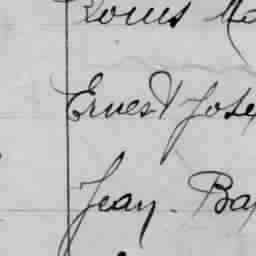 Louis
Ernest Jose
Jean. Bap